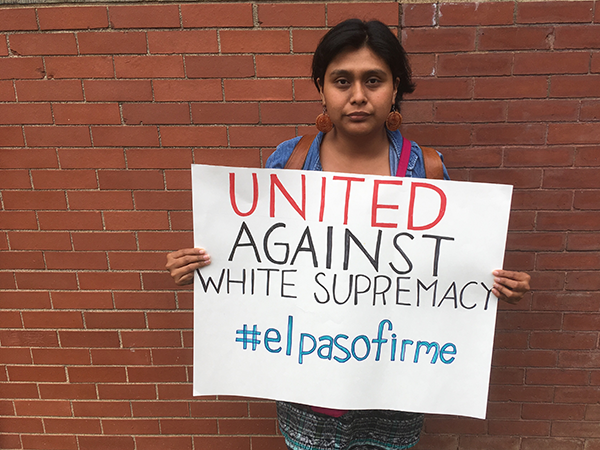 UNITED
AGAINST
WHITE SUPREMACY
#elpasofirme